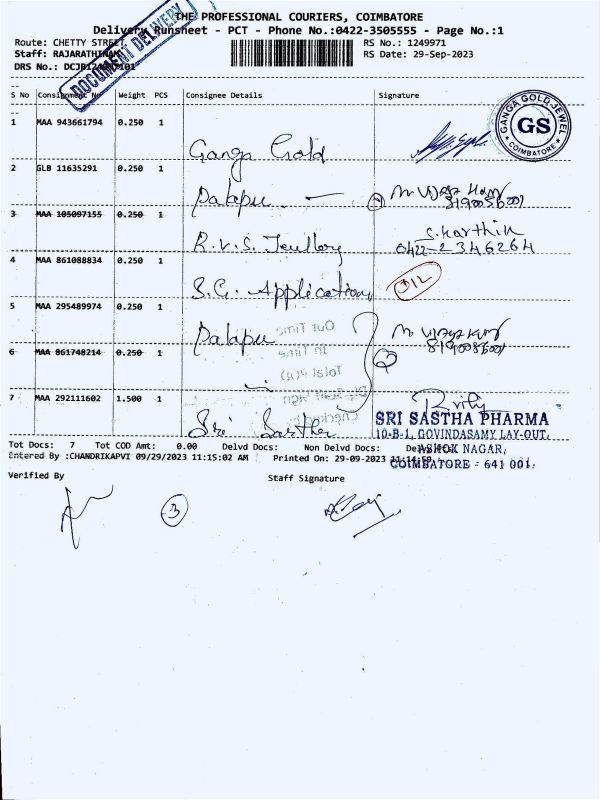 THE PROFESSIONAL COURIERS, COIMBATORE
Delivery Runsheet - PCT - Phone No.:0422-3505555 - Page No.:1
DOCUMENT DELIVERY
Route: CHETTY STREET
RS No.: 1249971
Staff: RAJARATHINAM
RS Date: 29-Sep-2023
DRS No.:
S No Consignment No Weight PCS Consignee Details Signature
1 MAA 943661794 0.250 1 Ganga Gold
GANGA GOLD JEWEL
GS
COIMBATORE
2 GLB 11635291 0.250 1
3 MAA 105097155 0.250 1 R.V.S. Jewllery S.Karthik
0422-2346264
4 MAA 861088834 0.250 1 S.G. Application
5 MAA 295489974 0.250 1
Out Time
In Time
6 MAA 861748214 0.250 1
Total
7 MAA 292111602 1.500 1 Sri Sastha
SRI SASTHA PHARMA
10-B-1, GOVINDASAMY LAY-OUT,
ASHOK NAGAR,
COIMBATORE - 641 001.
Tot Docs: 7 Tot COD Amt: 0.00 Delvd Docs: Non Delvd Docs:
Entered By :CHANDRIKAPVT 09/29/2023 11:15:02 AM Printed On: 29-09-2023
Verified By
Staff Signature
3